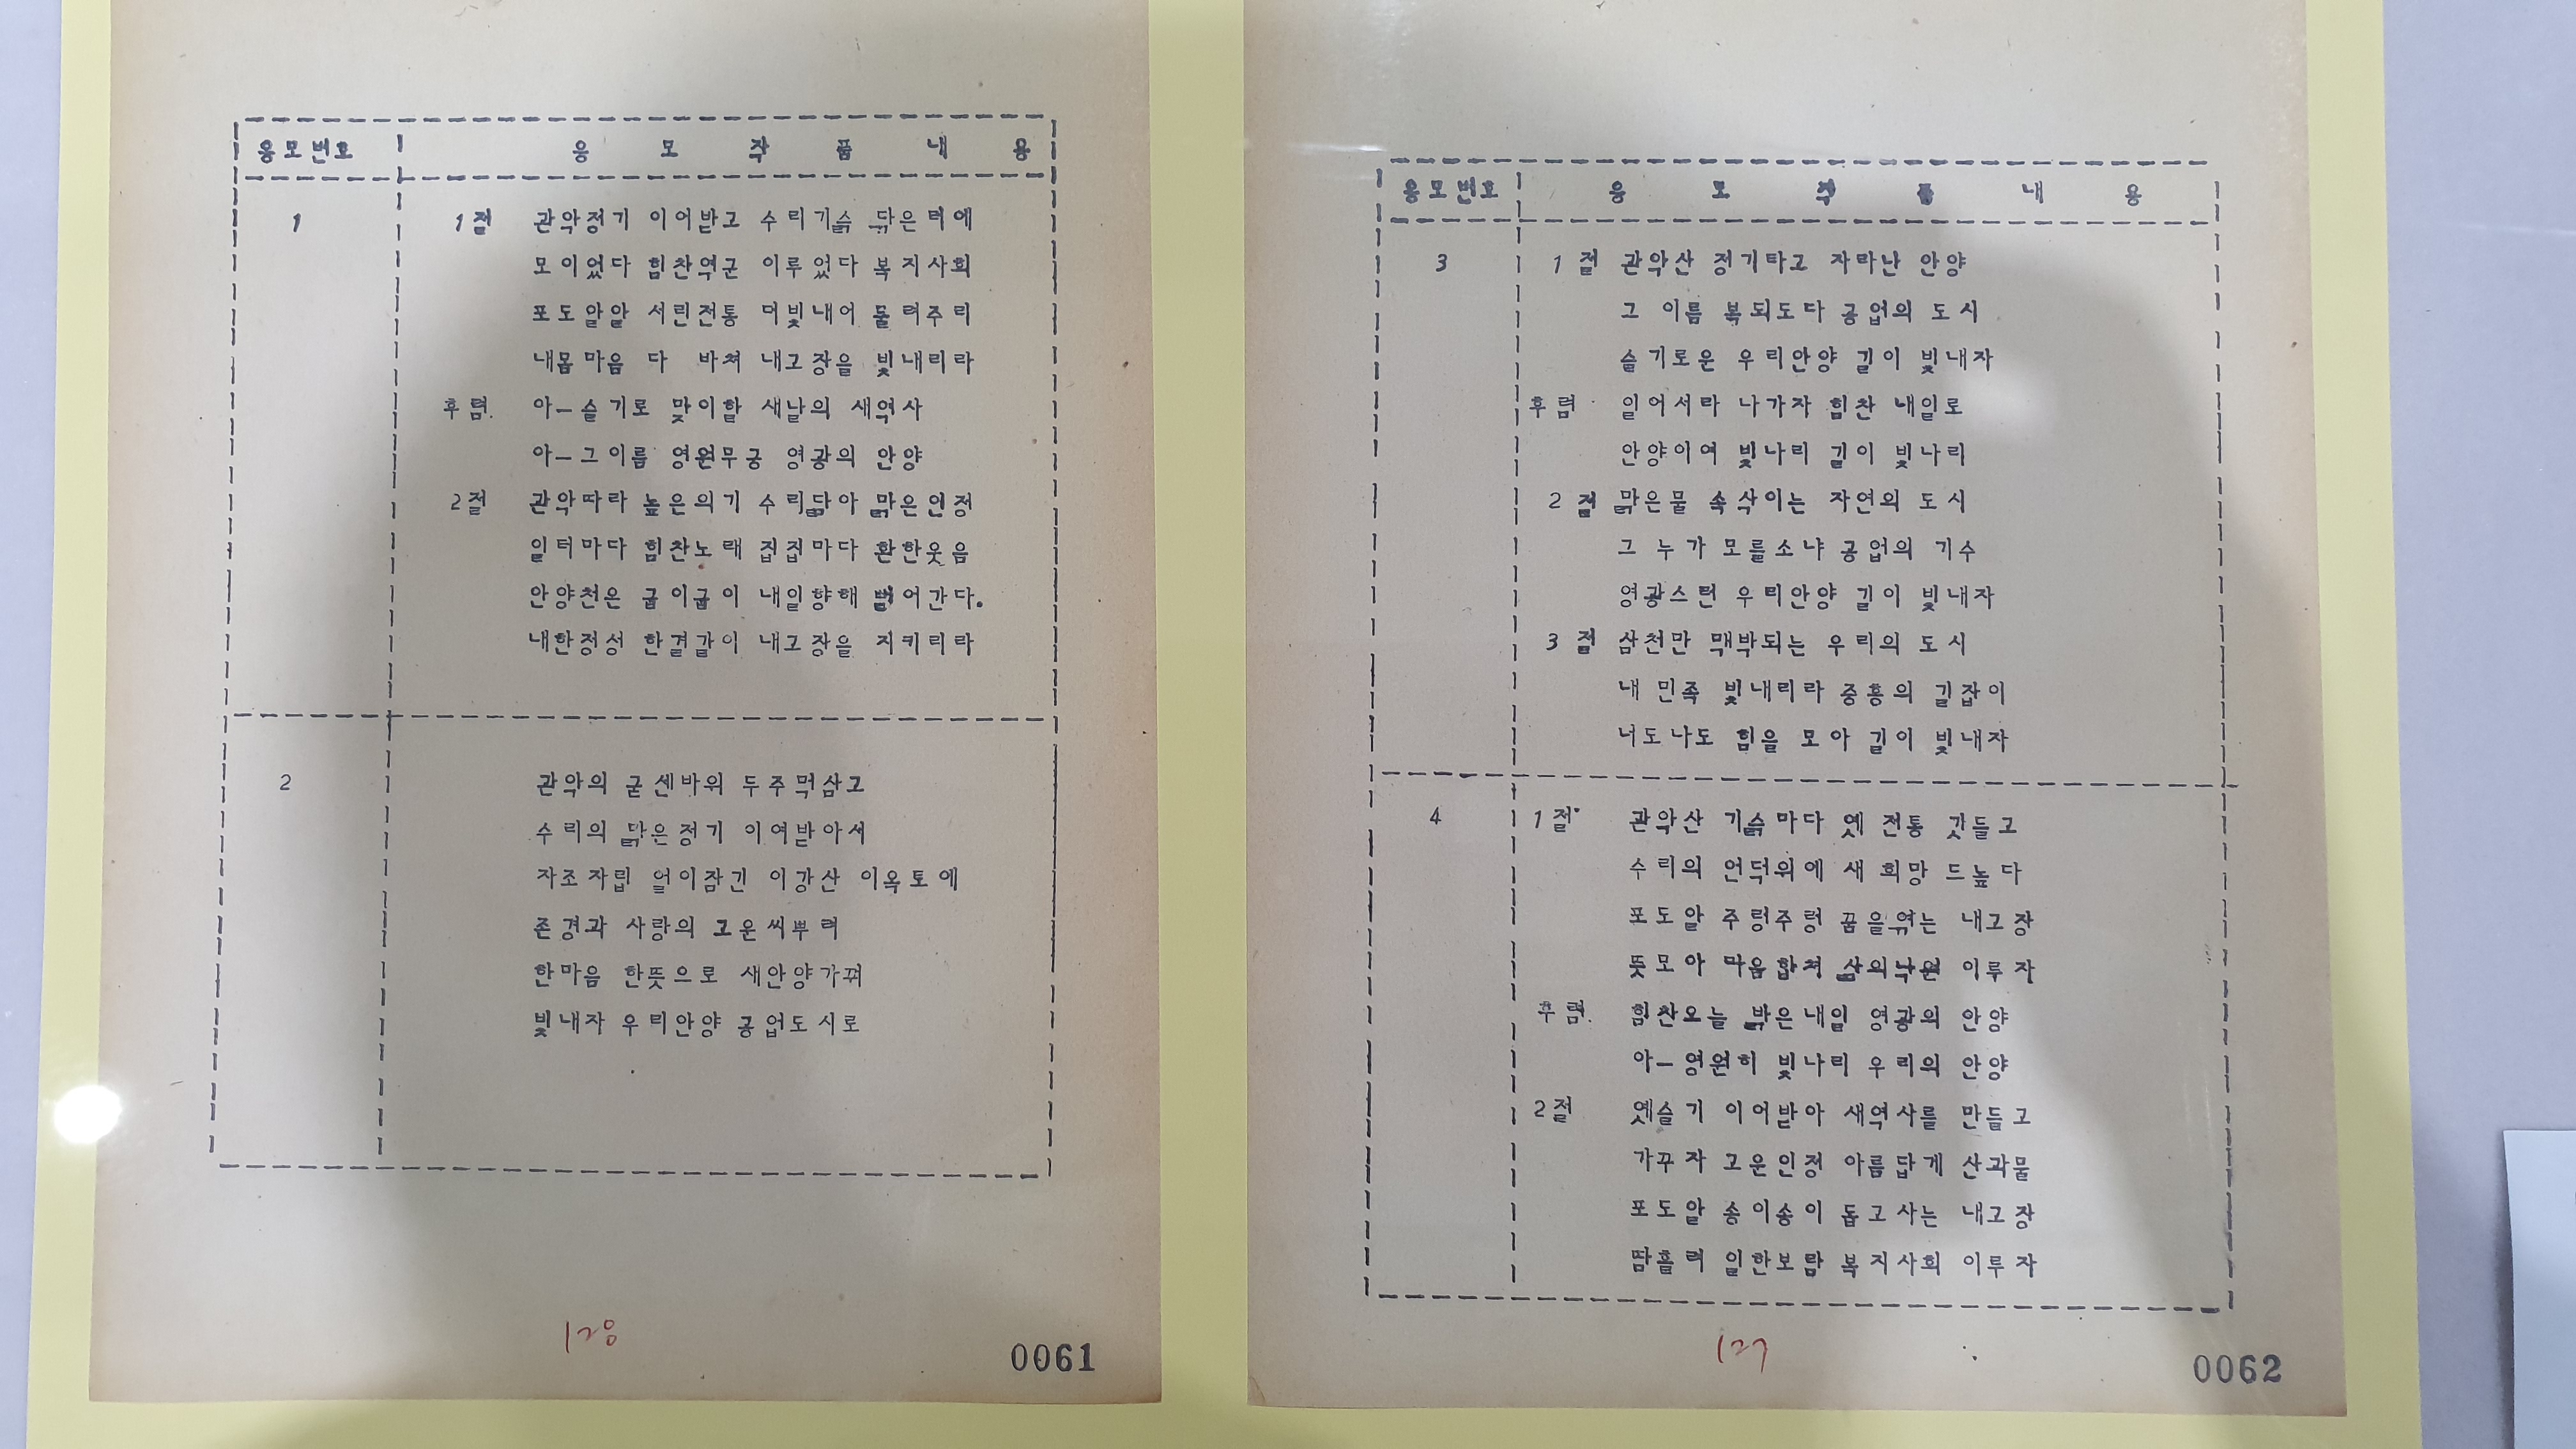 응모번호 응 모 작 품 내 용
1 1절 관악정기 이어받고 수리기슭 닦은터에
모이었다 힘찬역군 이루었다 복지사회
포도알알 서린전통 더빛내어 물려주리
내몸마음 다 바쳐 내고장을 빛내리라
후렴. 아-슬기로 맞이할 새날의 새역사
아-그이름 영원무궁 영광의 안양
2절 관악따라 높은의기 수리닮아 맑은인정
일터마다 힘찬노래 집집마다 환한웃음
안양천은 굽이굽이 내일향해 뻗어간다.
내한정성 한결같이 내고장을 지키리라
2 관악의 굳센바위 두주먹삼고
수리의 맑은정기 이여받아서
자조자립 얼이잠긴 이강산 이옥토에
존경과 사랑의 고운씨뿌려
한마음 한뜻으로 새안양가꿔
빛내자 우리안양 공업도시로
128
0061
응모번호 응 모 작 품 내 용
3 1절 관악산 정기타고 자라난 안양
그 이름 복되도다 공업의 도시
슬기로운 우리안양 길이 빛내자
후렴 일어서라 나가자 힘찬 내일로
안양이여 빛나리 길이 빛나리
2절 맑은물 속삭이는 자연의 도시
그 누가 모를소냐 공업의 기수
영광스런 우리안양 길이 빛내자
3절 삼천만 맥박되는 우리의 도시
내 민족 빛내리라 중흥의 길잡이
너도나도 힘을 모아 길이 빛내자
4 1절 관악산 기슭마다 옛 전통 깃들고
수리의 언덕위에 새 희망 드높다
포도알 주렁주렁 꿈을엮는 내고장
뜻모아 마음합쳐 삶의낙원 이루자
후렴. 힘찬오늘 밝은내일 영광의 안양
아-영원히 빛나리 우리의 안양
2절 옛슬기 이어받아 새역사를 만들고
가꾸자 고운인정 아름답게 산과물
포도알 송이송이 돕고사는 내고장
땀흘려 일한보람 복지사회 이루자
127
0062